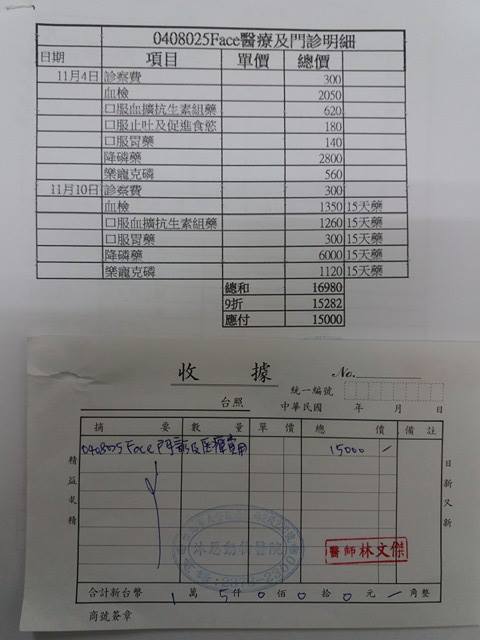 0408025Face醫療及門診明細
日期 項目 單價 總價
11月4日 診察費 300
血檢 2050
口服血擴抗生素組藥 620
口服止吐及促進食慾 180
口服胃藥 140
降磷藥 2800
樂寵克磷 560
11月10日 診察費 300
血檢 1350 15天藥
口服血擴抗生素組藥 1260 15天藥
口服胃藥 300 15天藥
降磷藥 6000 15天藥
樂寵克磷 1120 15天藥
總和 16980
9折 15282
應付 15000
收據 No.
統一編號
台照 中華民國 年 月 日
摘要 數量 單價 總價 備註
0408025 Face 門診及醫療費用 15000
精益求精
日新又新
沐恩動物醫院
醫師林文傑
合計新台幣 1萬5仟0佰0拾0元 角整
商號簽章